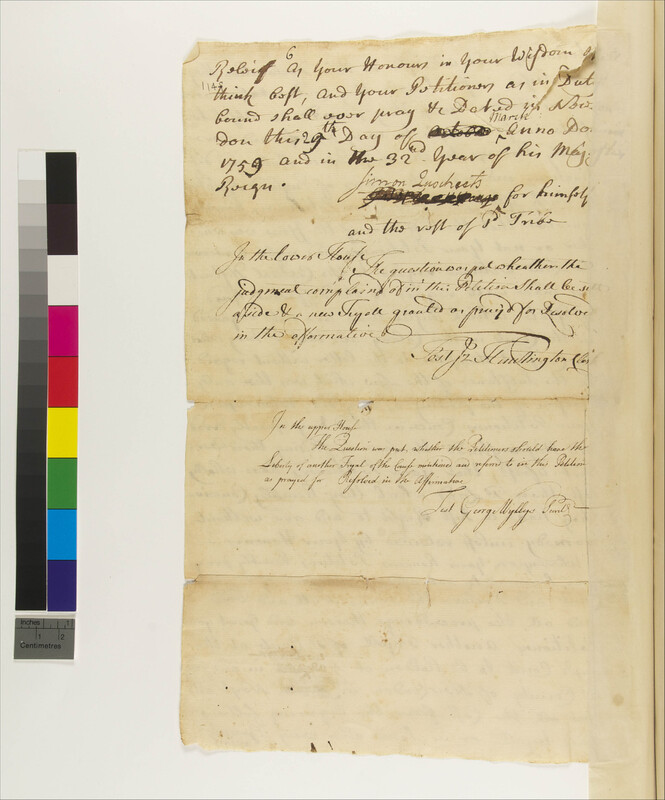 6
Releif as Your Honours in Your Wisdom
114
think best, and Your Petitioners as in Dut
bound shall ever pray &c Dated in New
March
don this 29th Day of Anno Do
1759 and in the 32nd Year of his Maj
Reign.
Simon for himself
and the rest of sd Tribe
In the lower House
The question was put wheather the
judgment complaind of in this Petition shall be
aside & a new Tryall granted as prayd for Resolve
in the affermative
Test Jz Huntington Cler
In the upper House
the Question was put, whether the Petitioners should have the
Liberty of another Tryal of the Cause mentioned and refered to in this Petition
as prayed for Resolved in the Affirmative
Test George Wyllys Secret
Inches
1
1 2
Centimetres